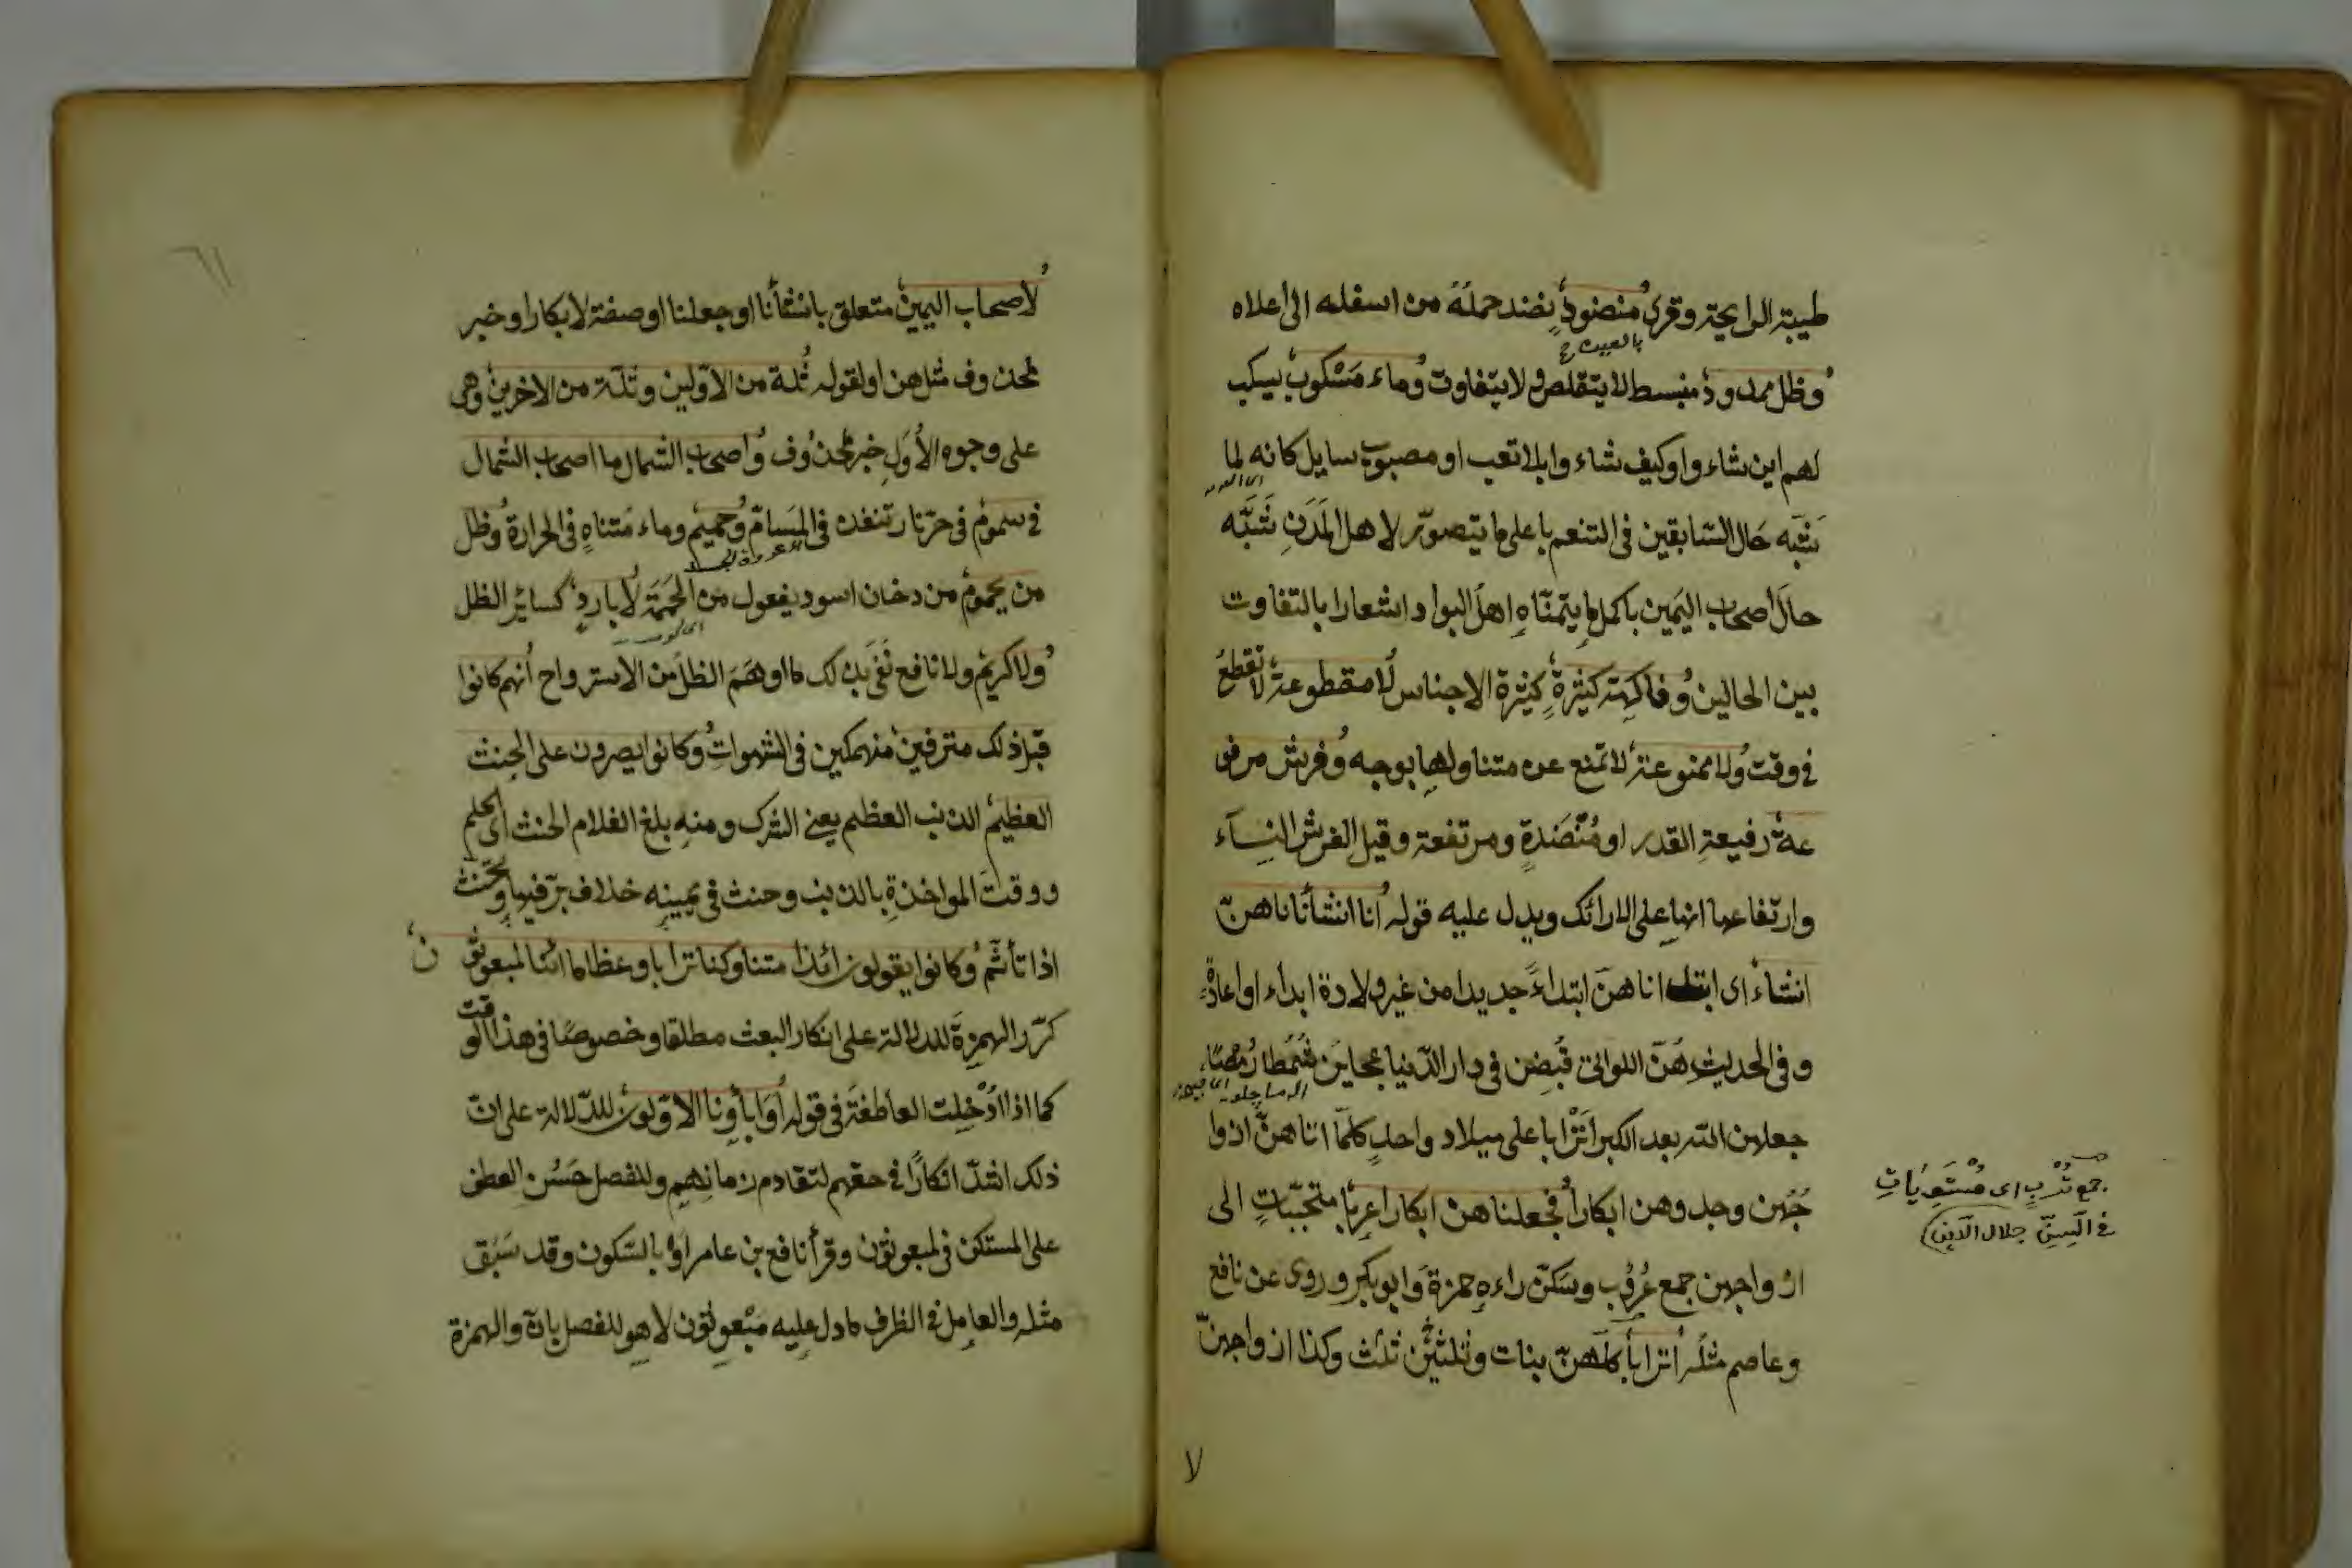 طيبة الرايحة وقرئ منضودٍ نضد حمله من اسفله الى اعلاه
بالعين
وظل ممدود منبسط لا يتقلص ولا يتفاوت وماء مسكوب يسكب
لهم اين شاءوا وكيف شاءوا بلا تعب او مصبوب سايل كانه لما
شبّه حال السّابقين فى التنعم باعلى ما يتصوّر لاهل المَدَنِ شَبَّه
حالَ اصحاب اليَمين باكمل ما يتمنّاه اهلُ البواد اشعارا بالتفاوت
بين الحالين وفاكهة كثيرةٍ كثيرة الاجناس لا مقطوعة لا تقطع
فى وقت ولا ممنوعة لا تمنع عن متناولها بوجه وفرش مرفو
عة رفيعةِ القدر او مُنَضَّدةٍ ومرتفعة وقيل الفرش النسآء
وارتفاعها انها على الارائك ويدل عليه قوله انا انشأناهنّ
انشاءً اى ابتداناهنّ ابتداءً جديدا من غير ولادة ابداء او اعادةً
وفى الحديثِ هُنّ اللواتى قُبِضن فى دار الدّنيا عجايَز شُمْطا رُمْصًا
جعلهن الله بعد الكبر اَتْرابا على ميلاد واحدٍ كلّما اتاهنّ ازوا
جُهن وجدوهن ابكاراً فجعلناهن ابكارا عربًا متحبّباتٍ الى
ازواجهن جمع عَرُوب وسَكّن راءه حمزة وَابوبكر وروى عن نافع
وعاصم مثله اترابًا كلهنّ بنات وثلثين ثلث وكذا ازواجهنّ
جمع تِرْبٍ اى مُسْتَوِيَاتٍ
فى السِنِّ جلال الدّين
لا
٦١
لاصحاب اليمين متعلق بانشأنا او جعلنا او صفة لابكارا او خبر
لمحذوف مثل هن او لقوله ثُلة من الاوّلين وثُلّة من الاخرين وهى
على وجوه الاُوَلِ خبر محذُوف واصحاب الشمال ما اصحاب الشمال
فى سموم فى حرّ نار تنفذ فى المَسَامّ وحميم وماء مُتناهٍ فى الحرارة وظل
من يحموم من دخان اسود يفعول من الحُمَمَة لا باردٍ كسائر الظل
ولا كريم ولا نافع نَفَى بذلك ما اوهَمَ الظلّ من الاسترواح انهم كانوا
قبل ذلك مترفين منهمكين فى الشهوات وكانوا يصرون على الحِنث
العظيم الذنب العظيم يعنى الشرك ومنه بلغ الغلام الحنث اى الحلم
ووقتَ المواخذةِ بالذنب وحنث فى يمينه خلاف برّ فيها وتحنّث
اذا تأثّم وكانوا يقولون ائذا متنا وكنا ترابا وعظاما ائنا لمبعوثو
ن
كرّر الهمزةَ للدلالة على انكار البعث مطلقا وخصوصًا فى هذا الوقت
كما اذا اُدْخِلت العاطفة فى قوله اَوَاباؤنا الاوّلون للدّلالة على انّ
ذلك اشدّ انكارًا فى حقهم لتقادم زمانهم وللفصل حَسُن العطف
على المستكن فى لمبعوثون وقرأ نافع بن عامر اوْ بالسّكون وقد سَبَق
مثله والعامِل فى الظرف ما دل عليه مَبْعوثون لا هو للفصل بانّ والهمزة